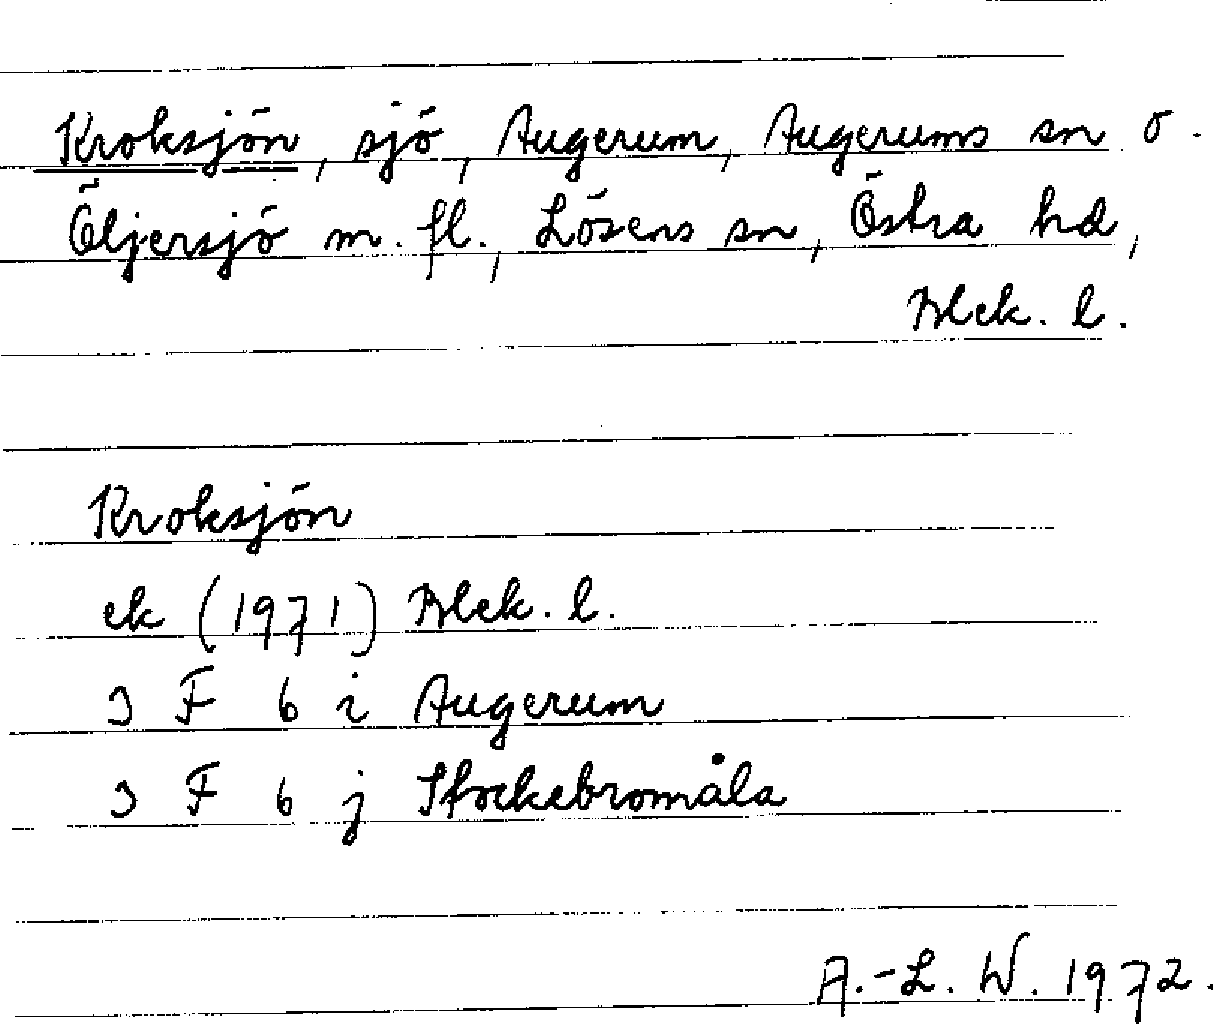 Kroksjön, sjö, Augerum, Augerums sn o.
Öljersjö m. fl., Lösens sn, Östra hd,
Blek. l.
Kroksjön
ek (1971) Blek. l.
3 F 6 i Augerum
3 F 6 j Stockebromåla
A.-L. W. 1972.